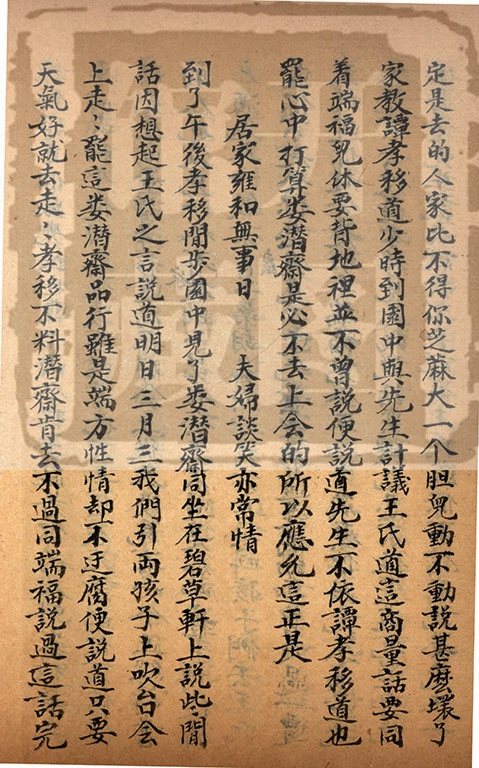 定是去的人家比不得你芝蔴大一个胆兒動不動說甚麽壞了
家教譚孝移道少時到園中與先生計議王氏道這商量話要同
着端福兒休要背地裡並不曾說便說道先生不依譚孝移道也
罷心中打算婁潛齋是必不去上会的所以應允這正是
居家雍和無事日 夫婦談笑亦常情
到了午後孝移閒步園中見了婁潛齋同坐在碧草軒上說此閒
話因想起王氏之言說道明日三月三我們引両孩子上吹台会
上走〻罷這婁潛齋品行雖是端方性情却不迂腐便說道只要
天氣好就去走〻孝移不料潛齋肯去不過同端福說過這話完